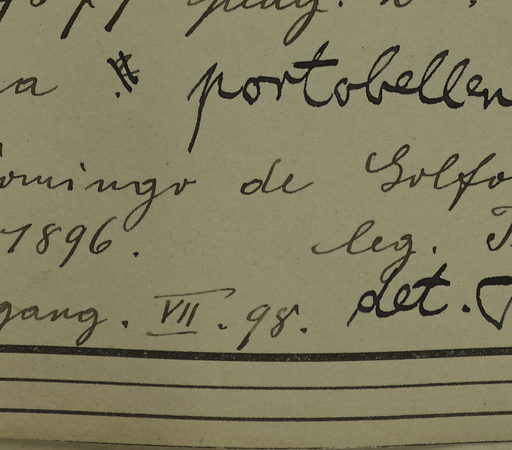 a # portobellen
omingo de Golfo
1896. leg.
gang. VII. 98. det.